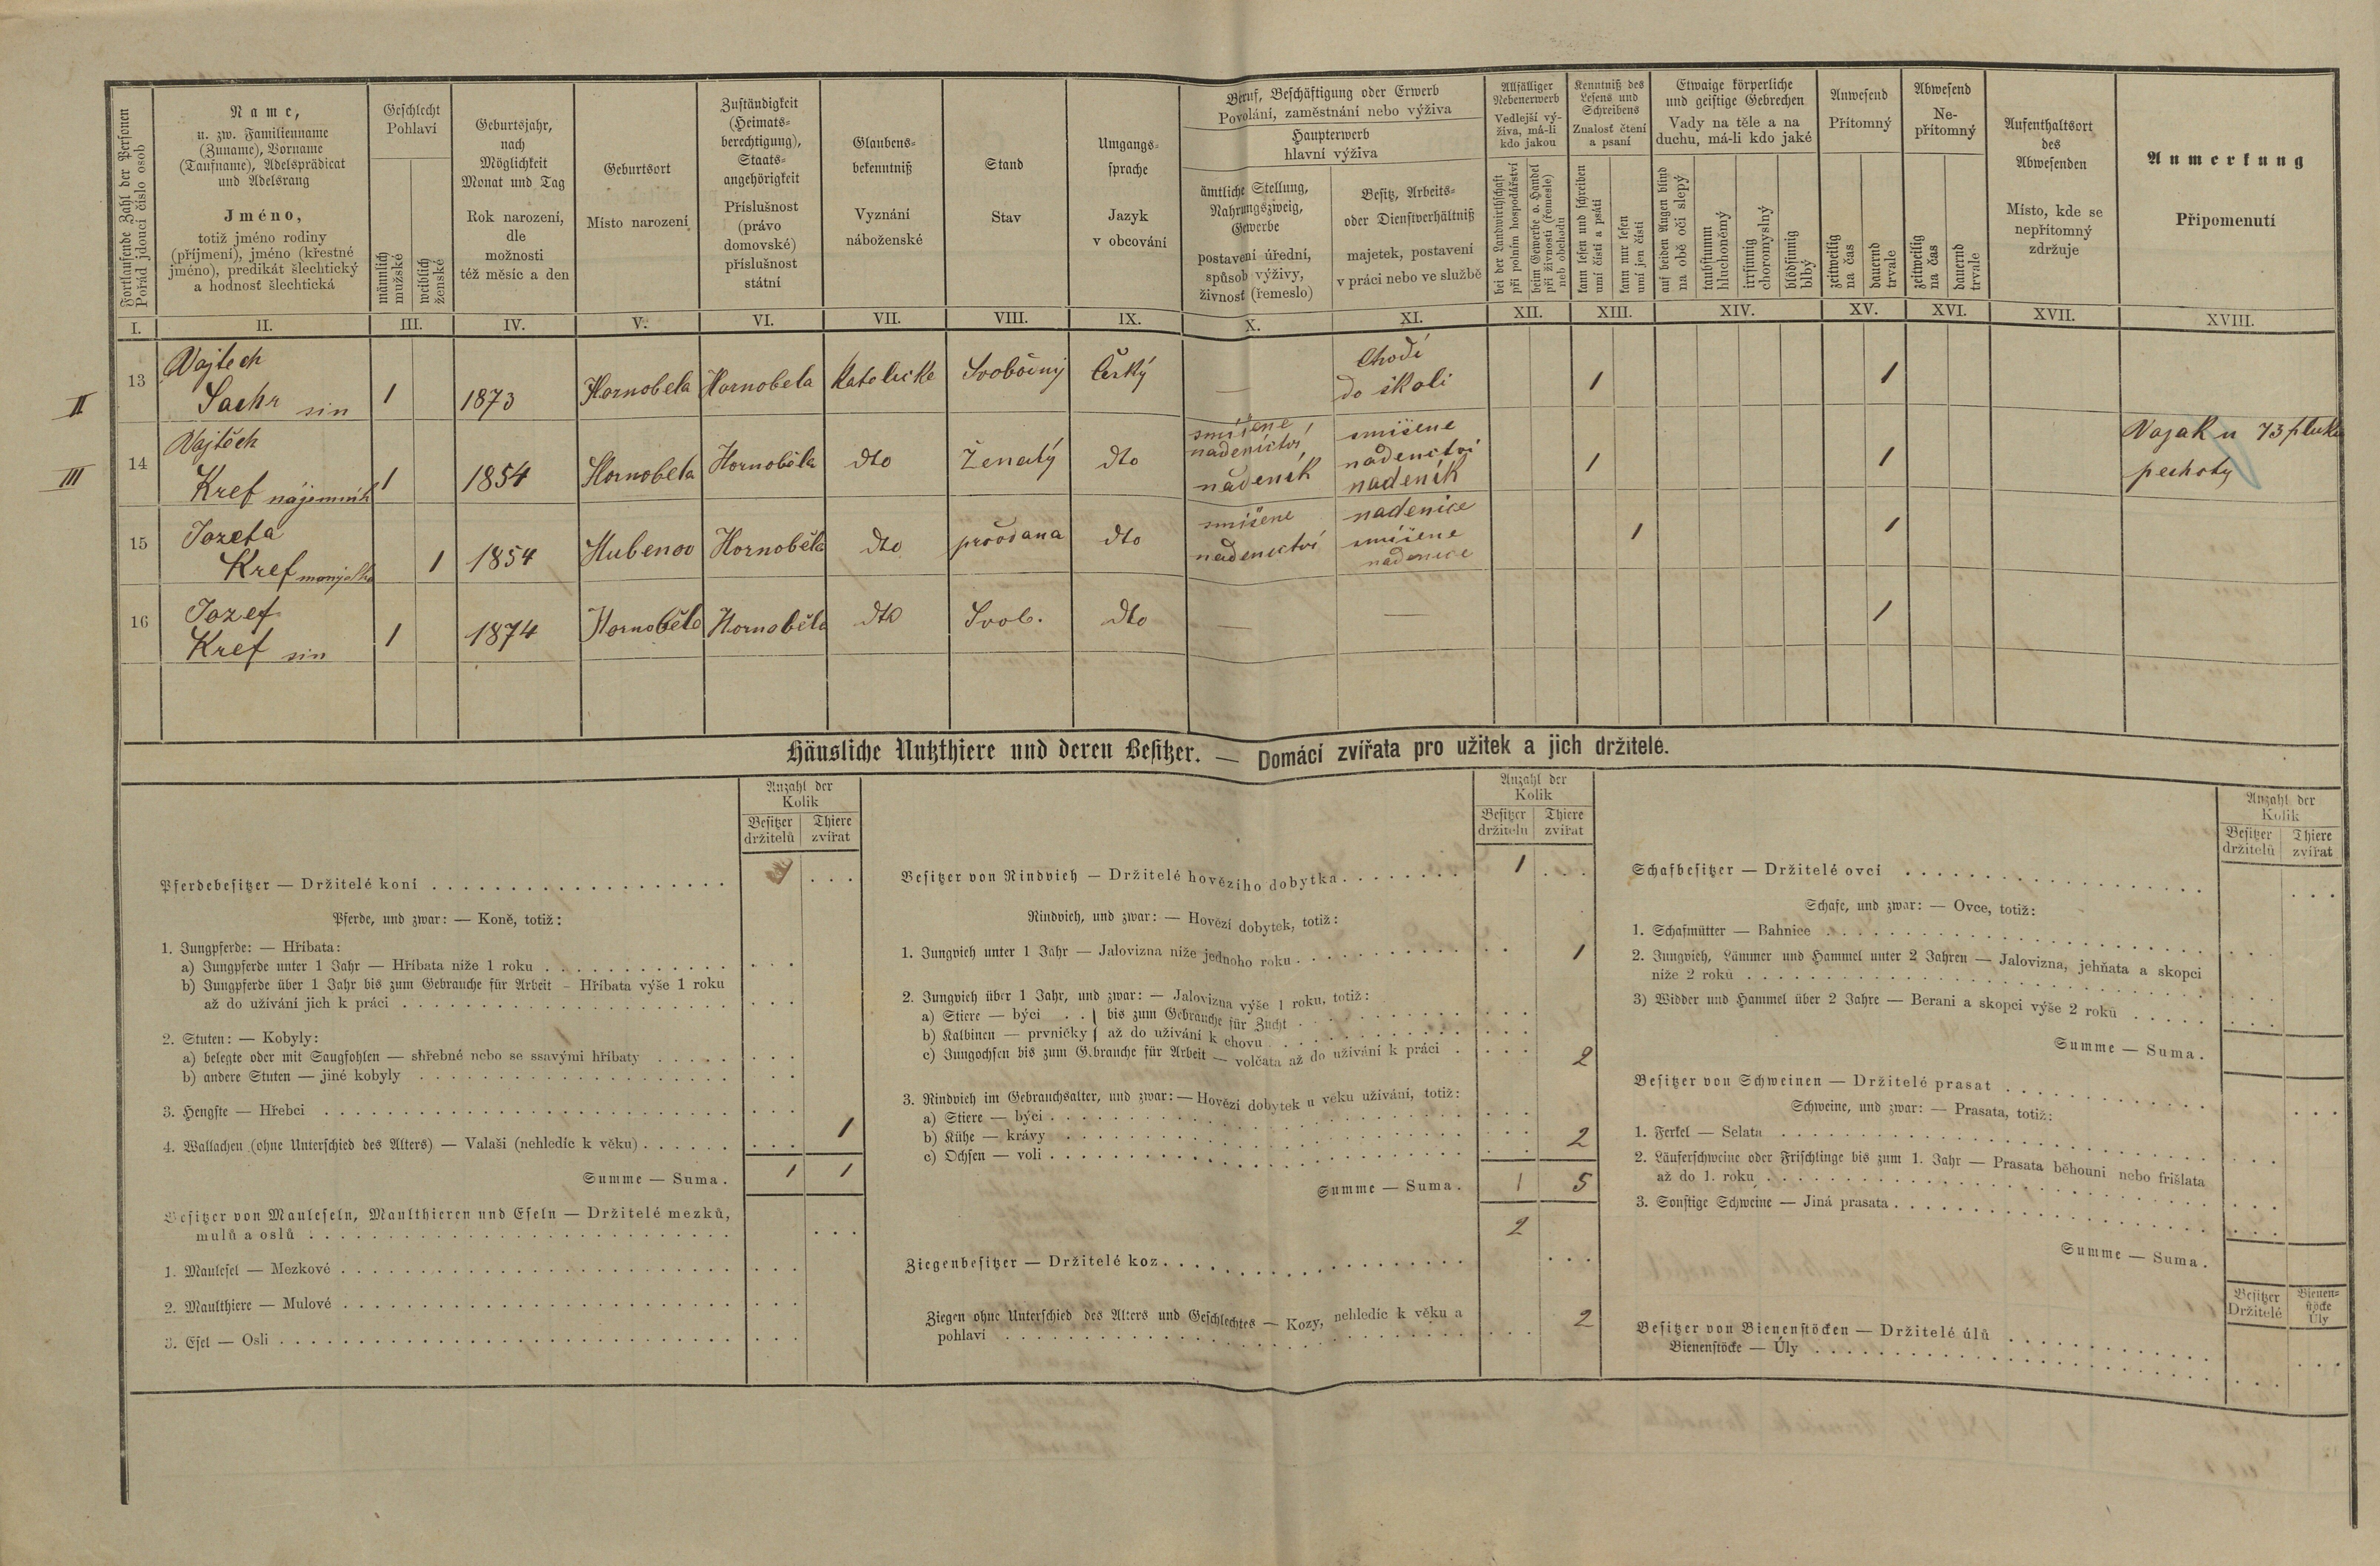 Fortlaufende Zahl der Personen
Pořád jdoucí číslo osob
Name,
u. zw. Familienname
(Zuname), Vorname
(Taufname), Adelsprädicat
und Adelsrang
Jméno,
totiž jméno rodiny
(příjmení), jméno (křestné
jméno), predikát šlechtický
a hodnosť šlechtická
Geschlecht
Pohlaví
männlich
mužské
weiblich
ženské
Geburtsjahr,
nach
Möglichkeit
Monat und Tag
Rok narození,
dle
možnosti
též měsíc a den
Geburtsort
Místo narození
Zuständigkeit
(Heimats-
berechtigung),
Staats-
angehörigkeit
Příslušnost
(právo
domovské)
příslušnost
státní
Glaubens-
bekenntniß
Vyznání
náboženské
Stand
Stav
Umgangs-
sprache
Jazyk
v obcování
Beruf, Beschäftigung oder Erwerb
Povolání, zaměstnání nebo výživa
Haupterwerb
hlavní výživa
ämtliche Stellung,
Nahrungszweig,
Gewerbe
postavení úřední,
spůsob výživy,
živnosť (řemeslo)
Besitz, Arbeits-
oder Dienstverhältniß
majetek, postavení
v práci nebo ve službě
Allfälliger
Nebenerwerb
Vedlejší vý-
živa, má-li
kdo jakou
bei der Landwirthschaft
při polním hospodářství
beim Gewerbe o. Handel
při živnosti (řemesle)
neb obchodu
Kenntniß des
Lesens und
Schreibens
Znalosť čtení
a psaní
kann lesen und schreiben
umí čísti a psáti
kann nur lesen
umí jen čísti
Etwaige körperliche
und geistige Gebrechen
Vady na těle a na
duchu, má-li kdo jaké
auf beiden Augen blind
na obě oči slepý
taubstumm
hluchoněmý
irrsinnig
choromyslný
blödsinnig
blbý
Anwesend
Přítomný
zeitweilig
na čas
dauernd
trvale
Abwesend
Ne-
přítomný
zeitweilig
na čas
dauernd
trvale
Aufenthaltsort
des
Abwesenden
Místo, kde se
nepřítomný
zdržuje
Anmerkung
Připomenutí
I. II. III. IV. V. VI. VII. VIII. IX. X. XI. XII. XIII. XIV. XV. XVI. XVII. XVIII.
Vojtech Chodí
II 13 Sachr sin 1 1873 Hornobela Hornobela Katolické Svobodný Český — do školi 1 1
Vojtěch smíšene smíšene Vojak u 73 pluku
nadenictví nadenictví
III 14 Kref nájemník 1 1854 Hornobela Hornoběla dto Ženatý dto nádeník nadeník 1 1 pechoty
Jozefa smíšene nadenice
15 Kref manjelka 1 1854 Hubenov Hornoběla dto provdana dto nadenictví smíšene 1 1
nadenice
Jozef
16 Kref sin 1 1874 Hornoběla Hornoběla dto Svob. dto — — 1
Häusliche Nutzthiere und deren Besitzer. — Domácí zvířata pro užitek a jich držitelé.
Anzahl der
Kolik
Besitzer Thiere
držitelů zvířat
Pferdebesitzer — Držitelé koní
Pferde, und zwar: — Koně, totiž:
1. Jungpferde: — Hříbata:
a) Jungpferde unter 1 Jahr — Hříbata níže 1 roku
b) Jungpferde über 1 Jahr bis zum Gebrauche für Arbeit – Hříbata výše 1 roku
až do užívání jich k práci
2. Stuten: — Kobyly:
a) belegte oder mit Saugfohlen — shřebné nebo se ssavými hříbaty
b) andere Stuten — jiné kobyly
3. Hengste — Hřebci
4. Wallachen (ohne Unterschied des Alters) — Valaši (nehledíc k věku) 1
Summe — Suma. 1 1
Besitzer von Mauleseln, Maulthieren und Eseln — Držitelé mezků,
mulů a oslů
1. Maulesel — Mezkové
2. Maulthiere — Mulové
3. Esel — Osli
Anzahl der
Kolik
Besitzer Thiere
držitelů zvířat
Besitzer von Rindvieh — Držitelé hovězího dobytka 1
Rindvieh, und zwar: — Hovězí dobytek, totiž:
1. Jungvieh unter 1 Jahr — Jalovizna níže jednoho roku 1
2. Jungvieh über 1 Jahr, und zwar: — Jalovizna výše 1 roku, totiž:
a) Stiere — býci . . } bis zum Gebrauche für Zucht
b) Kalbinen — prvničky } až do užívání k chovu
c) Jungochsen bis zum Gebrauche für Arbeit — volčata až do užívání k práci 2
3. Rindvieh im Gebrauchsalter, und zwar: — Hovězí dobytek u věku užívání, totiž:
a) Stiere — býci
b) Kühe — krávy 2
c) Ochsen — voli
Summe — Suma. 1 5
2
Ziegenbesitzer — Držitelé koz
Ziegen ohne Unterschied des Alters und Geschlechtes — Kozy, nehledíc k věku a
pohlaví 2
Anzahl der
Kolik
Besitzer Thiere
držitelů zvířat
Schafbesitzer — Držitelé ovcí
Schafe, und zwar: — Ovce, totiž:
1. Schafmütter — Bahnice
2. Jungvieh, Lämmer und Hammel unter 2 Jahren — Jalovizna, jehňata a skopci
níže 2 roků
3) Widder und Hammel über 2 Jahre — Berani a skopci výše 2 roků
Summe — Suma.
Besitzer von Schweinen — Držitelé prasat
Schweine, und zwar: — Prasata, totiž:
1. Ferkel — Selata
2. Läuferschweine oder Frischlinge bis zum 1. Jahr — Prasata běhouni nebo frišlata
až do 1. roku
3. Sonstige Schweine — Jiná prasata
Summe — Suma.
Besitzer Bienen-
stöcke
Držitelé Úly
Besitzer von Bienenstöcken — Držitelé úlů
Bienenstöcke — Úly